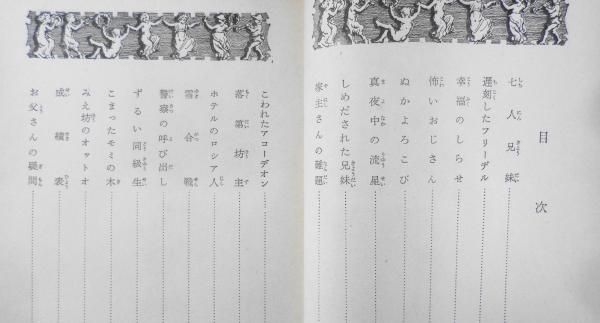 目次
七人兄妹
遅刻したフリーデル
幸福のしらせ
怖いおじさん
ぬかよろこび
真夜中の流星
しめだされた兄妹
家主さんの難題
こわれたアコーデオン
落第坊主
ホテルのロシア人
雪合戦
警察の呼び出し
ずるい同級生
こまったモミの木
みえ坊のオットオ
成績表
お父さんの疑問